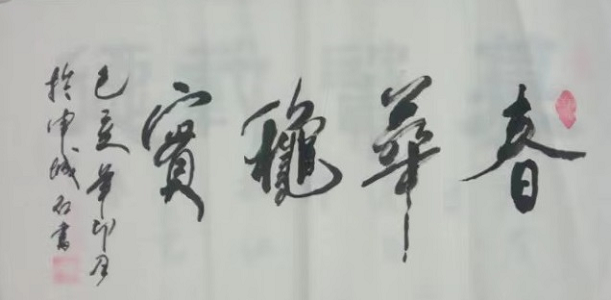 春華龝實
己亥年卯月
於申城石書